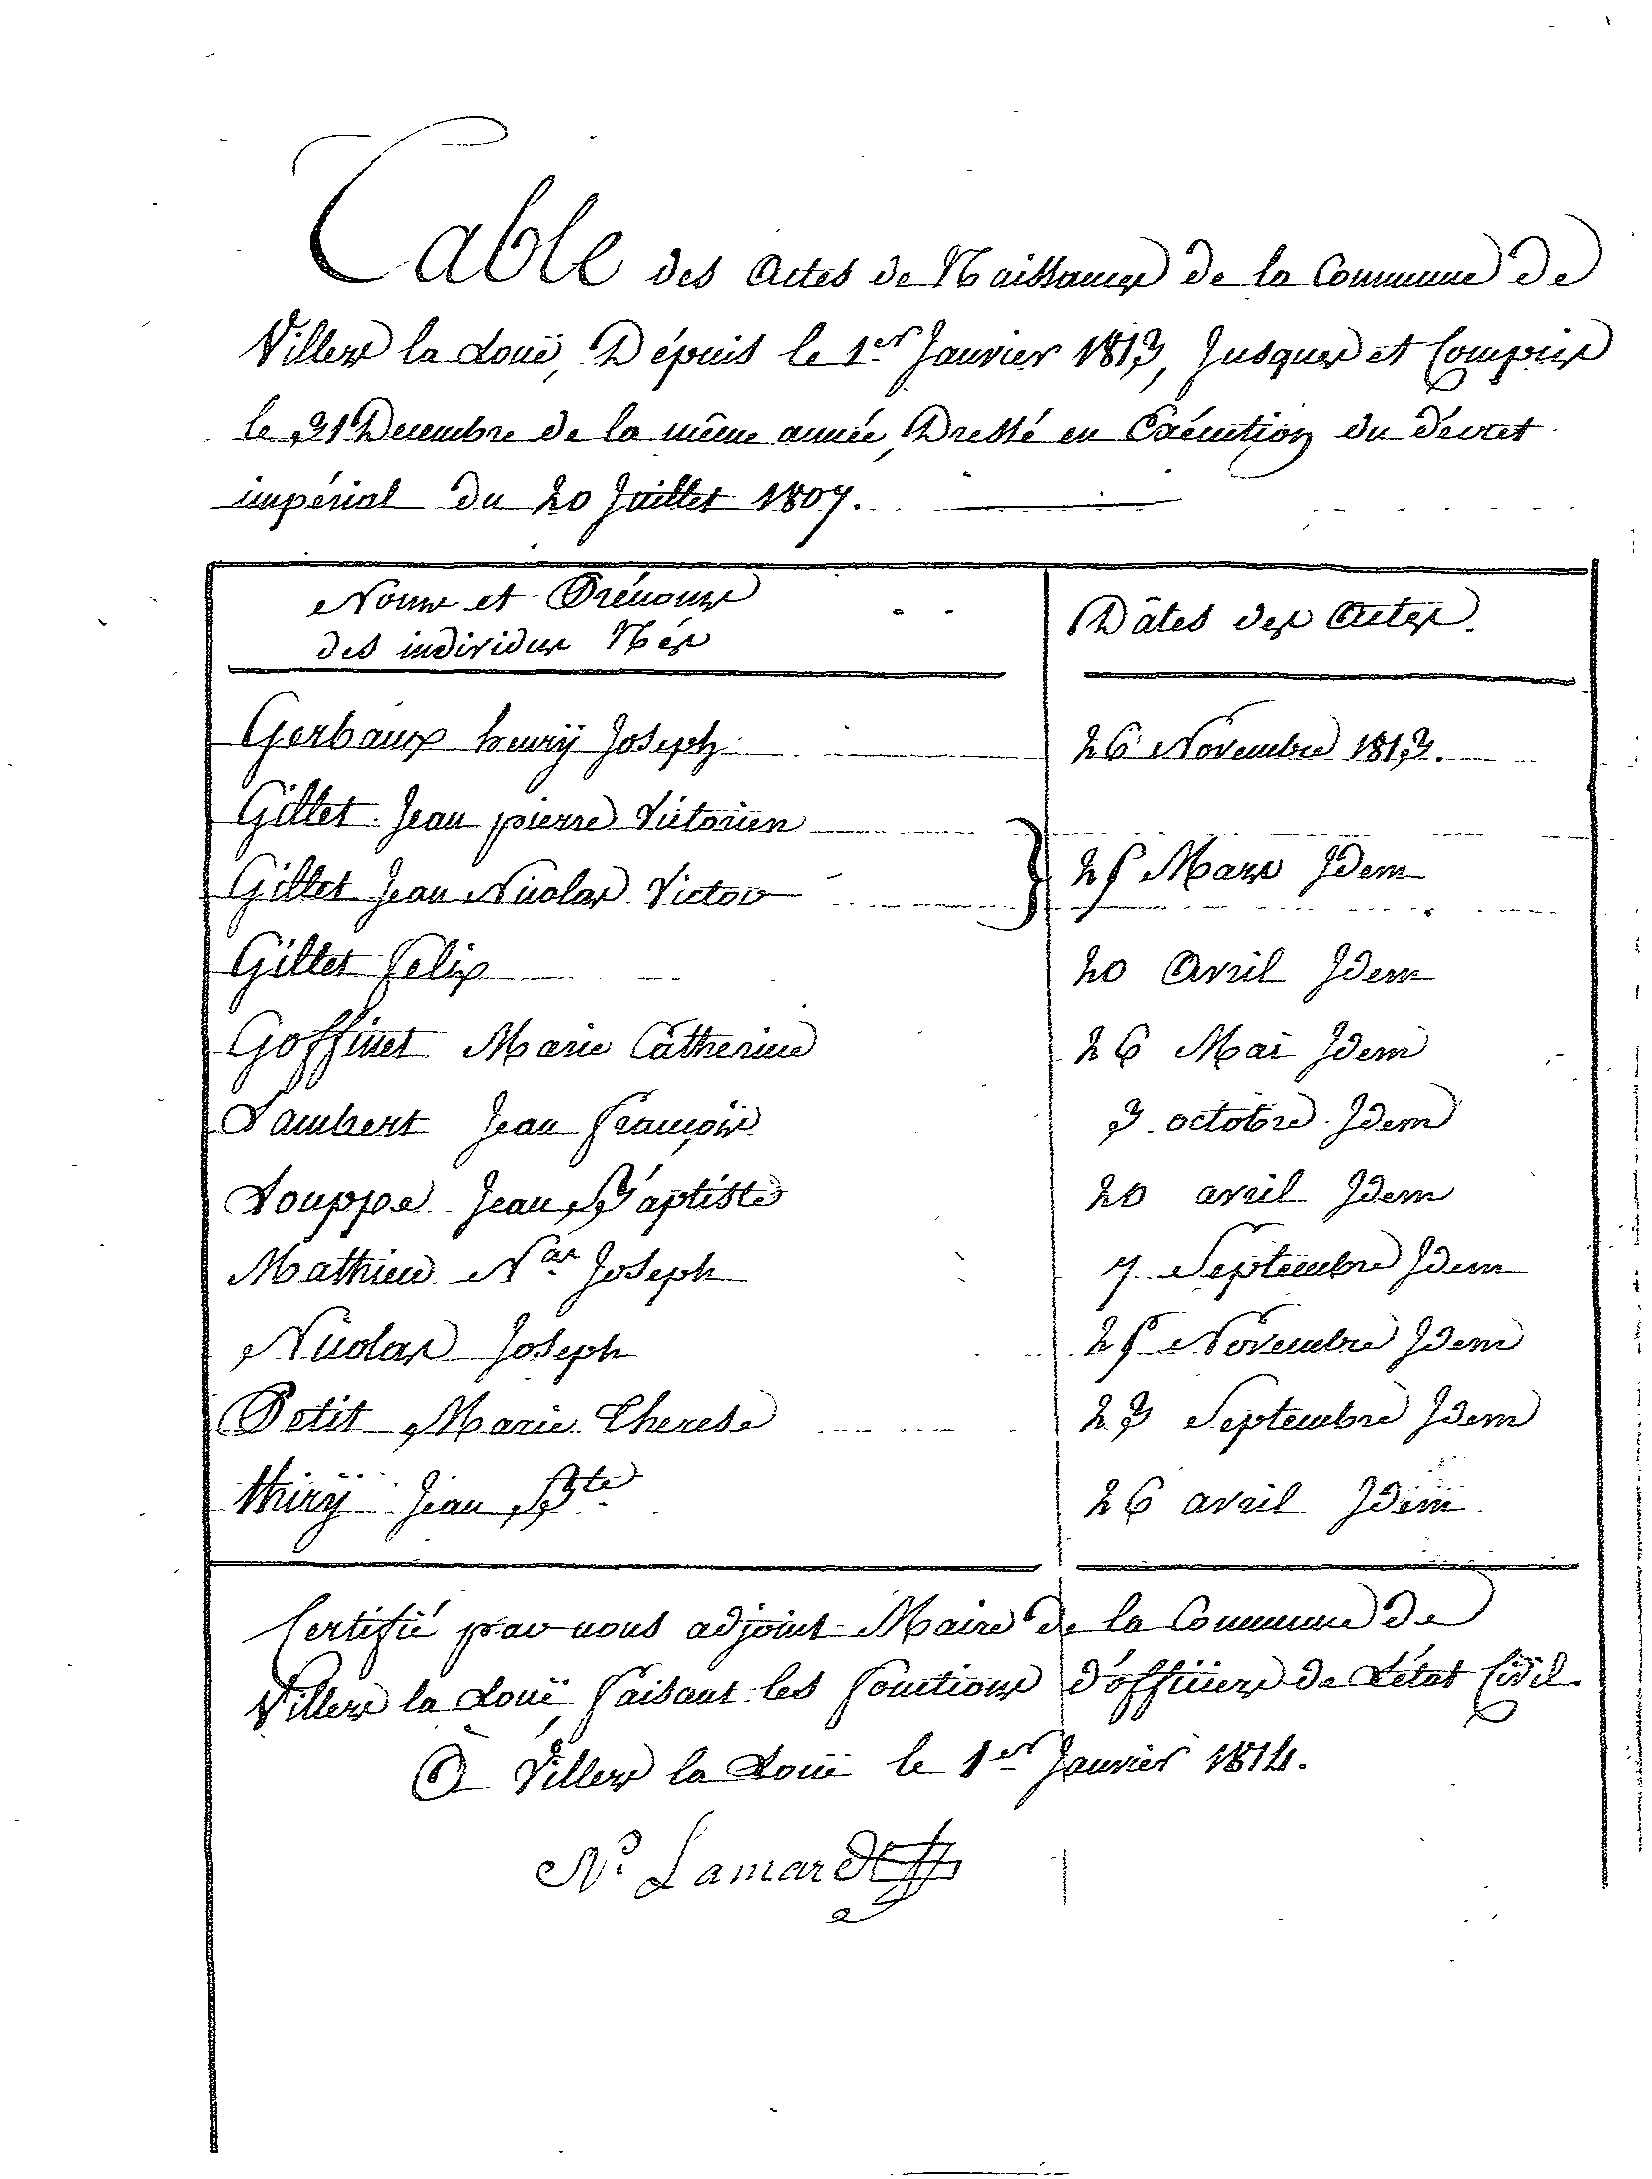 Table des Actes de Naissances de la Commune de
Villers la Loüe, Dépuis le 1er Janvier 1813, Jusques et Compris
le 31 Decembre de la même année, Dressé en Exécution du décret
impérial du 20 Juillet 1807.
Noms et Prénoms
des individus Nés
Dâtes des Actes.
Gerbaux henrÿ Joseph 26 Novembre 1813.
Gillet Jean pierre Victorien
Gillet Jean Nicolas Victor } 25 Mars Idem
Gillet Felix 20 Avril Idem
Goffinet Marie Catherine 26 Mai Idem
Lambert Jean François 3 octobre Idem
Louppe Jean Baptiste 20 avril Idem
Mathieu Nas Joseph 7 Septembre Idem
Nicolas Joseph 25 Novembre Idem
Petit Marie Therese 23 Septembre Idem
thirÿ Jean Bte 26 avril Idem
Certifié par nous adjoint Maire de la Commune de
Villers la Loüe, faisant les fonctions d'officiers de L'état Civil.
À Villers la Loüe le 1er Janvier 1814.
N. Lamard